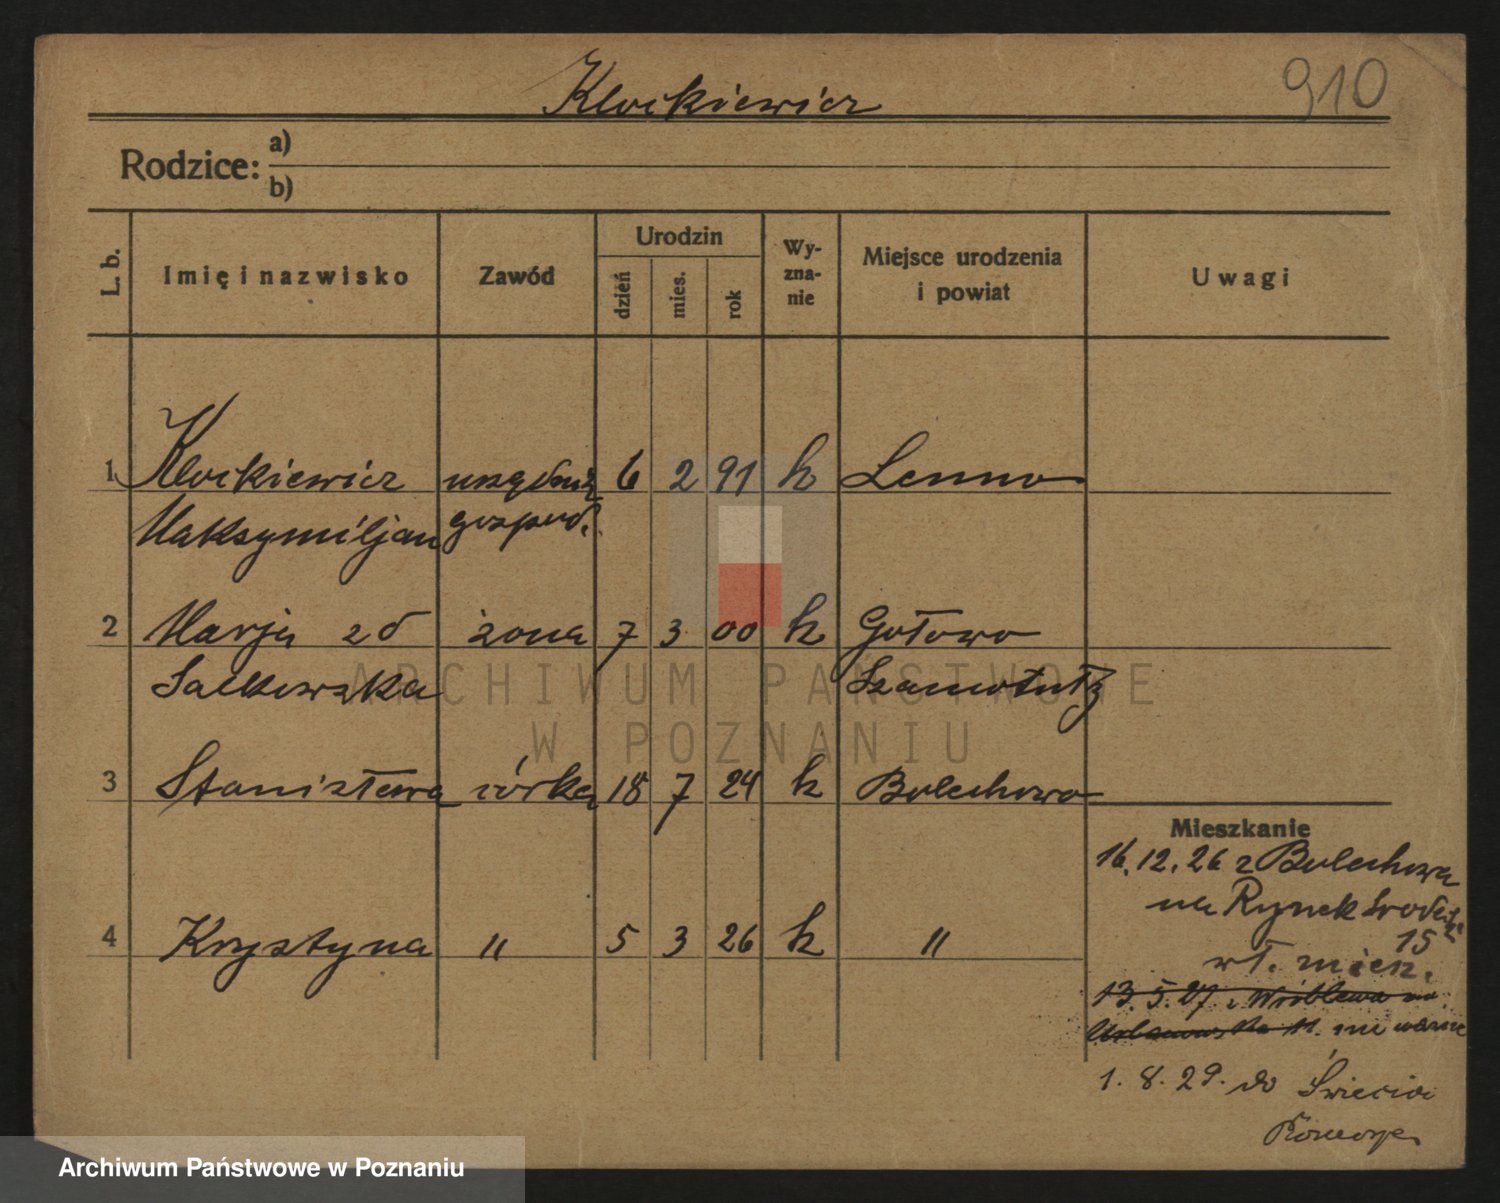 910
Klockiewicz
Rodzice: a)
b)
L. b. Imię i nazwisko Zawód Urodzin dzień mies. rok Wy-zna-nie Miejsce urodzenia i powiat Uwagi
1 Klockiewicz 6 2 91 k Lenno
Maksymiljan gospod.
2 Marja zd żona 7 3 00 k Gołowo
Szamotuły
3 Stanisława córka 18 7 24 k Bolechowo
Mieszkanie
16.12.26 z Bolechowa
na Rynek Śródecki
15
4 Krystyna " 5 3 26 k "
wł. miesz.
13.5.27 z Wróblewa na
nie ważne
1.8.29. do Świecia
Pomorze
ARCHIWUM PAŃSTWOWE
W POZNANIU
Archiwum Państwowe w Poznaniu